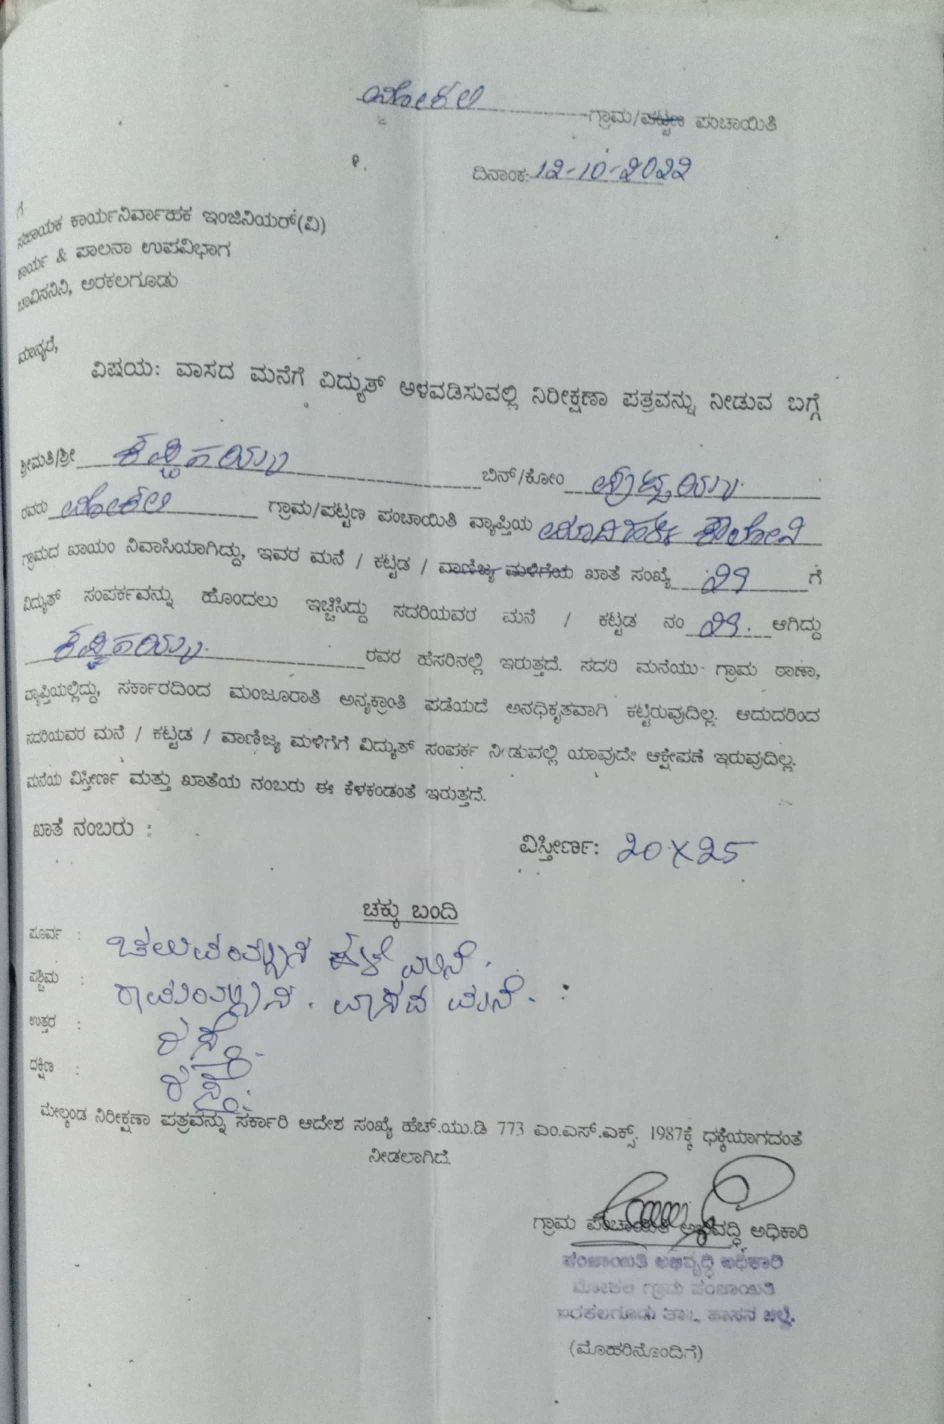 ಗ್ರಾಮ/ಪಟ್ಟಣ ಪಂಚಾಯಿತಿ
ದಿನಾಂಕ:- 12-10-2022
ಗೆ
ಸಹಾಯಕ ಕಾರ್ಯನಿರ್ವಾಹಕ ಇಂಜಿನಿಯರ್(ವಿ)
ಕಾರ್ಯ & ಪಾಲನಾ ಉಪವಿಭಾಗ
ಚಾವಿಸನಿನಿ, ಅರಕಲಗೂಡು
ಮಾನ್ಯರೆ,
ವಿಷಯ: ವಾಸದ ಮನೆಗೆ ವಿದ್ಯುತ್ ಅಳವಡಿಸುವಲ್ಲಿ ನಿರೀಕ್ಷಣಾ ಪತ್ರವನ್ನು ನೀಡುವ ಬಗ್ಗೆ
ಶ್ರೀಮತಿ/ಶ್ರೀ ಬಿನ್/ಕೋಂ
ರವರು ಗ್ರಾಮ/ಪಟ್ಟಣ ಪಂಚಾಯಿತಿ ವ್ಯಾಪ್ತಿಯ
ಗ್ರಾಮದ ಖಾಯಂ ನಿವಾಸಿಯಾಗಿದ್ದು, ಇವರ ಮನೆ / ಕಟ್ಟಡ / ವಾಣಿಜ್ಯ ಮಳಿಗೆಯ ಖಾತೆ ಸಂಖ್ಯೆ ಗೆ
ವಿದ್ಯುತ್ ಸಂಪರ್ಕವನ್ನು ಹೊಂದಲು ಇಚ್ಚಿಸಿದ್ದು ಸದರಿಯವರ ಮನೆ / ಕಟ್ಟಡ ನಂ ಆಗಿದ್ದು
ರವರ ಹೆಸರಿನಲ್ಲಿ ಇರುತ್ತದೆ. ಸದರಿ ಮನೆಯು ಗ್ರಾಮ ಠಾಣಾ,
ವ್ಯಾಪ್ತಿಯಲ್ಲಿದ್ದು, ಸರ್ಕಾರದಿಂದ ಮಂಜೂರಾತಿ ಅನ್ಯಕ್ರಾಂತಿ ಪಡೆಯದೆ ಅನಧಿಕೃತವಾಗಿ ಕಟ್ಟಿರುವುದಿಲ್ಲ. ಆದುದರಿಂದ
ಸದರಿಯವರ ಮನೆ / ಕಟ್ಟಡ / ವಾಣಿಜ್ಯ ಮಳಿಗೆಗೆ ವಿದ್ಯುತ್ ಸಂಪರ್ಕ ನೀಡುವಲ್ಲಿ ಯಾವುದೇ ಆಕ್ಷೇಪಣೆ ಇರುವುದಿಲ್ಲ.
ಮನೆಯ ವಿಸ್ತೀರ್ಣ ಮತ್ತು ಖಾತೆಯ ನಂಬರು ಈ ಕೆಳಕಂಡಂತೆ ಇರುತ್ತದೆ.
ಖಾತೆ ನಂಬರು : ವಿಸ್ತೀರ್ಣ: 20X25
ಚಕ್ಕು ಬಂದಿ
ಪೂರ್ವ : ಮನೆ.
ಪಶ್ಚಿಮ : ವಾಸದ ಮನೆ.
ಉತ್ತರ : ರಸ್ತೆ.
ದಕ್ಷಿಣ : ರಸ್ತೆ.
ಮೇಲ್ಕಂಡ ನಿರೀಕ್ಷಣಾ ಪತ್ರವನ್ನು ಸರ್ಕಾರಿ ಆದೇಶ ಸಂಖ್ಯೆ ಹೆಚ್.ಯು.ಡಿ 773 ಎಂ.ಎಸ್.ಎಕ್ಸ್. 1987ಕ್ಕೆ ಧಕ್ಕೆಯಾಗದಂತೆ
ನೀಡಲಾಗಿದೆ.
ಗ್ರಾಮ ಪಂಚಾಯಿತಿ ಅಭಿವೃದ್ಧಿ ಅಧಿಕಾರಿ
ಪಂಚಾಯಿತಿ ಅಭಿವೃದ್ಧಿ ಅಧಿಕಾರಿ
ಗ್ರಾಮ ಪಂಚಾಯಿತಿ
ಅರಕಲಗೂಡು ತಾ., ಹಾಸನ ಜಿಲ್ಲೆ.
(ಮೊಹರಿನೊಂದಿಗೆ)